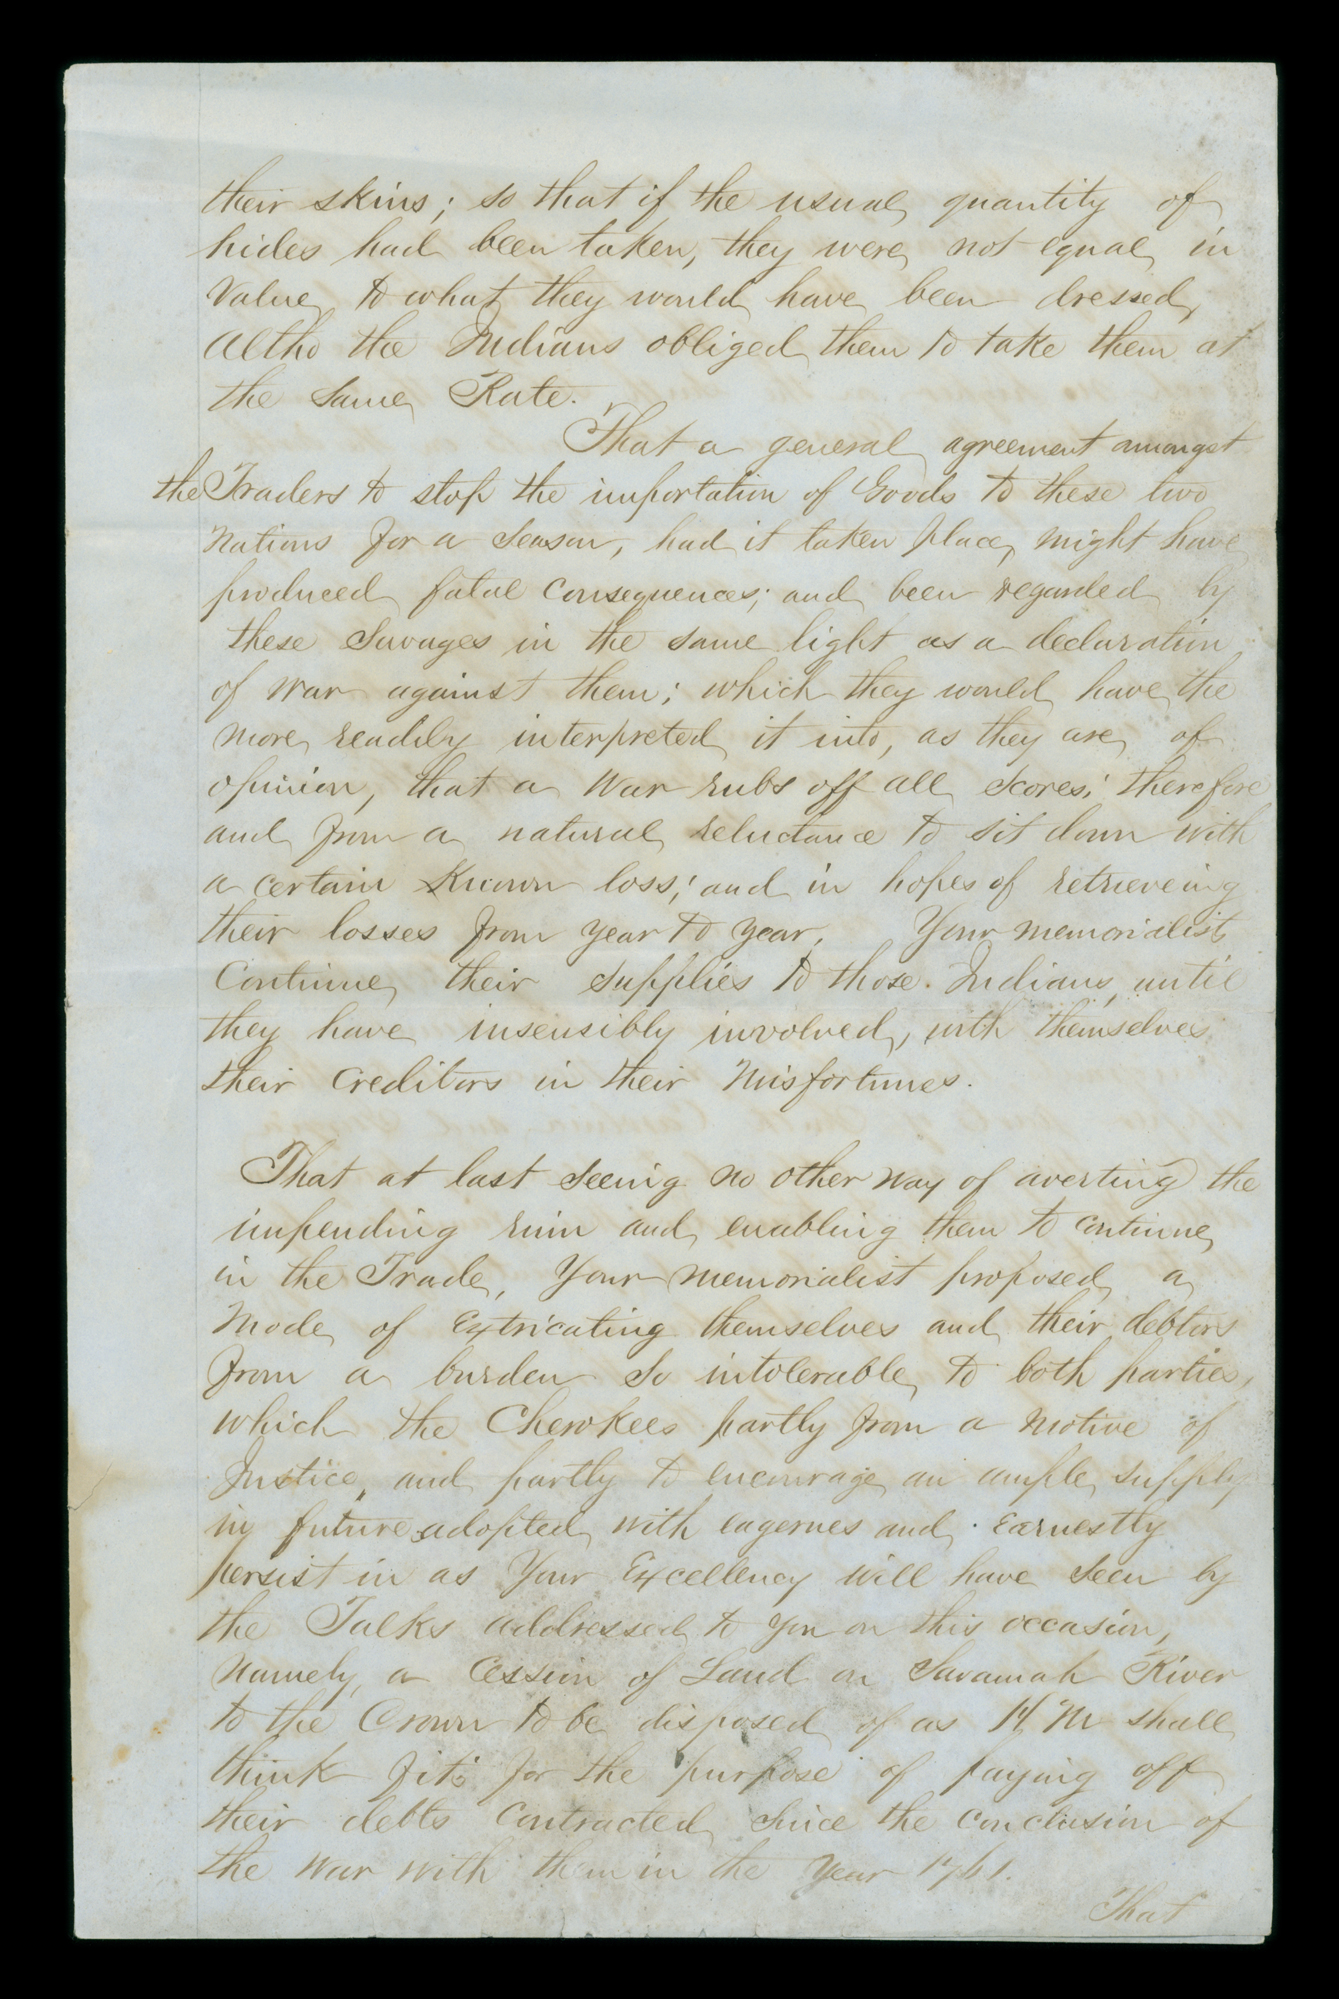 their skins; so that if the usual quantity of
hides had been taken, they were not equal in
Value to what they would have been dressed,
Altho the Indians obliged them to take them at
the Same Rate.
That a general agreement amongst
the Traders to stop the importation of Goods to these two
Nations for a Season, had it taken place, might have
produced fatal Consequences; and been regarded by
these Savages in the same light as a declaration
of war against them; which they would have the
more readily interpreted it into, as they are of
opinion, that a War rubs off all Scores; therefore
and from a natural reluctance to sit down with
a certain Known loss; and in hopes of retrieveing
their losses from year to year, Your memorialist
Continue their supplies to those Indians, until
they have insensibly involved, with themselves
their Creditors in their Misfortunes.
That at last Seeing no other way of averting the
impending ruin and enabling them to continue
in the Trade, Your memorialist proposed a
Mode of Extricating themselves and their debtors
from a burden So intolerable to both parties,
which the Cherokees partly from a motive of
Justice, and partly to encourage an ample supply
in future adopted with eagernes and earnestly
persist in as Your Excellency will have Seen by
the Talks addressed to you on this occasion,
Namely, a Cession of Land on Savannah River
to the Crown to be disposed of as H M shall
think fit; for the purpose of paying off
their debts Contracted Since the conclusion of
the War with them in the Year 1761.
That